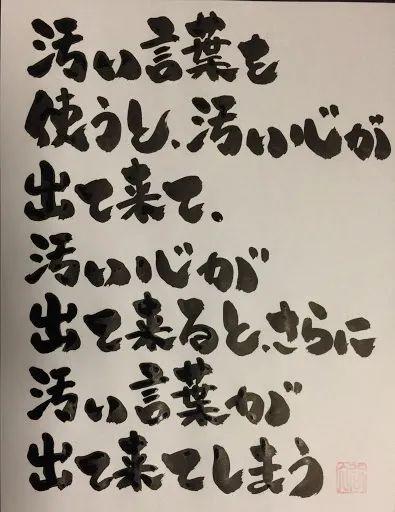 汚い言葉を
使うと、汚い心が
出て来て、
汚い心が
出て来ると、さらに
汚い言葉が
出て来てしまう